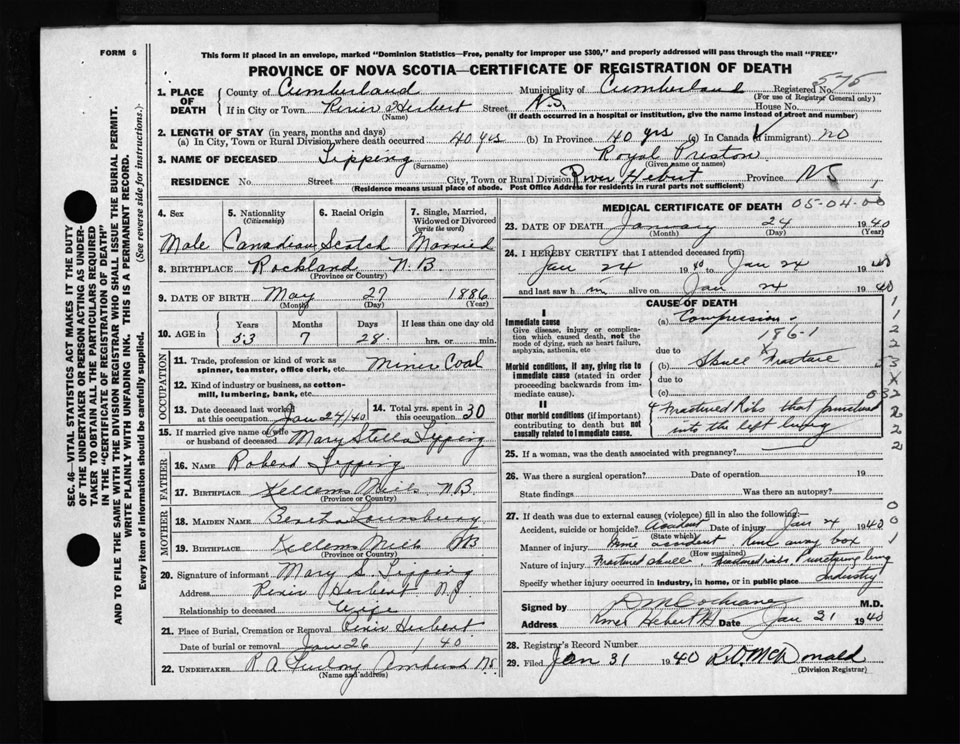 FORM 6
This form if placed in an envelope, marked "Dominion Statistics—Free, penalty for improper use $300," and properly addressed will pass through the mail "FREE"
PROVINCE OF NOVA SCOTIA—CERTIFICATE OF REGISTRATION OF DEATH
575
1. PLACE OF DEATH County of Cumberland Municipality of Cumberland Registered No. (For use of Registrar General only)
If in City or Town River Herbert (Name) Street N.S. House No.
(If death occurred in a hospital or institution, give the name instead of street and number)
2. LENGTH OF STAY (in years, months and days)
(a) In City, Town or Rural Division where death occurred 40 yrs (b) In Province 40 yrs (c) In Canada (if immigrant) no
3. NAME OF DECEASED Tipping (Surname) Royal Preston (Given name or names)
RESIDENCE No. Street City, Town or Rural Division River Hebert Province NS
(Residence means usual place of abode. Post Office Address for residents in rural parts not sufficient)
SEC. 46—VITAL STATISTICS ACT MAKES IT THE DUTY
OF THE UNDERTAKER OR PERSON ACTING AS UNDER-
TAKER TO OBTAIN ALL THE PARTICULARS REQUIRED
IN THE "CERTIFICATE OF REGISTRATION OF DEATH"
AND TO FILE THE SAME WITH THE DIVISION REGISTRAR WHO SHALL ISSUE THE BURIAL PERMIT.
WRITE PLAINLY WITH UNFADING INK. THIS IS A PERMANENT RECORD.
Every item of information should be carefully supplied. (See reverse side for instructions.)
4. Sex 5. Nationality (Citizenship) 6. Racial Origin 7. Single, Married, Widowed or Divorced (write the word)
Male Canadian Scotch Married
8. BIRTHPLACE Rockland N.B. (Province or Country)
9. DATE OF BIRTH May (Month) 27 (Day) 1886 (Year)
10. AGE in Years Months Days If less than one day old
53 7 28 hrs. or min.
OCCUPATION
11. Trade, profession or kind of work as spinner, teamster, office clerk, etc. Miner Coal
12. Kind of industry or business, as cotton-mill, lumbering, bank, etc.
13. Date deceased last worked at this occupation Jan 24/40 14. Total yrs. spent in this occupation 30
15. If married give name of wife or husband of deceased Mary Stella Tipping
FATHER
16. NAME Robend Tipping
17. BIRTHPLACE Kellems Mills N.B. (Province or Country)
MOTHER
18. MAIDEN NAME Bertha Lounsbury
19. BIRTHPLACE Kellems Mills NB (Province or Country)
20. Signature of informant Mary S. Tipping
Address River Herbert N.S
Relationship to deceased Wife
21. Place of Burial, Cremation or Removal River Herbert
Date of burial or removal Jan 26 1940
22. UNDERTAKER R A Amherst NS (Name and address)
MEDICAL CERTIFICATE OF DEATH 05-04-00
23. DATE OF DEATH January (Month) 24 (Day) 1940 (Year)
24. I HEREBY CERTIFY that I attended deceased from:
Jan 24 1940 to Jan 24 1940
and last saw him alive on Jan 24 1940
CAUSE OF DEATH
I
Immediate cause
Give disease, injury or complication which caused death, not the mode of dying, such as heart failure, asphyxia, asthenia, etc
(a) Compression
186-1
due to
Morbid conditions, if any, giving rise to immediate cause (stated in order proceeding backwards from immediate cause).
(b) Skull Fracture
due to
(c)
II
Other morbid conditions (if important) contributing to death but not causally related to immediate cause.
Fractured Ribs that punctured into the left lung
25. If a woman, was the death associated with pregnancy?
26. Was there a surgical operation? Date of operation 19
State findings Was there an autopsy?
27. If death was due to external causes (violence) fill in also the following:—
Accident, suicide or homicide? Accident (State which) Date of injury Jan 24 1940
Manner of injury Mine accident Run away box (How sustained)
Nature of injury Fractured skull, fractured ribs, Puncturing lung
Specify whether injury occurred in industry, in home, or in public place Industry
Signed by Cochrane M.D.
Address River Hebert NS Date Jan 31 1940
28. Registrar's Record Number
29. Filed Jan 31 1940 R.D. McDonald (Division Registrar)